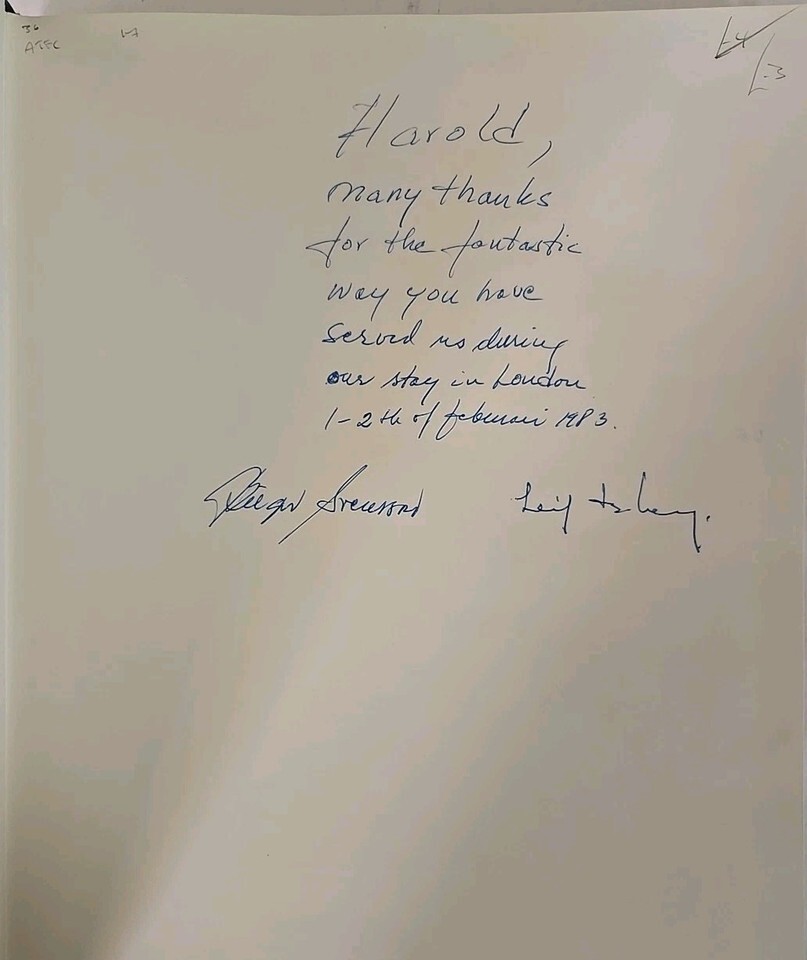 36
ATEC
Harold,
many thanks
for the fantastic
way you have
served us during
our stay in London
1-2th of februari 1983.
Svensson
Leif